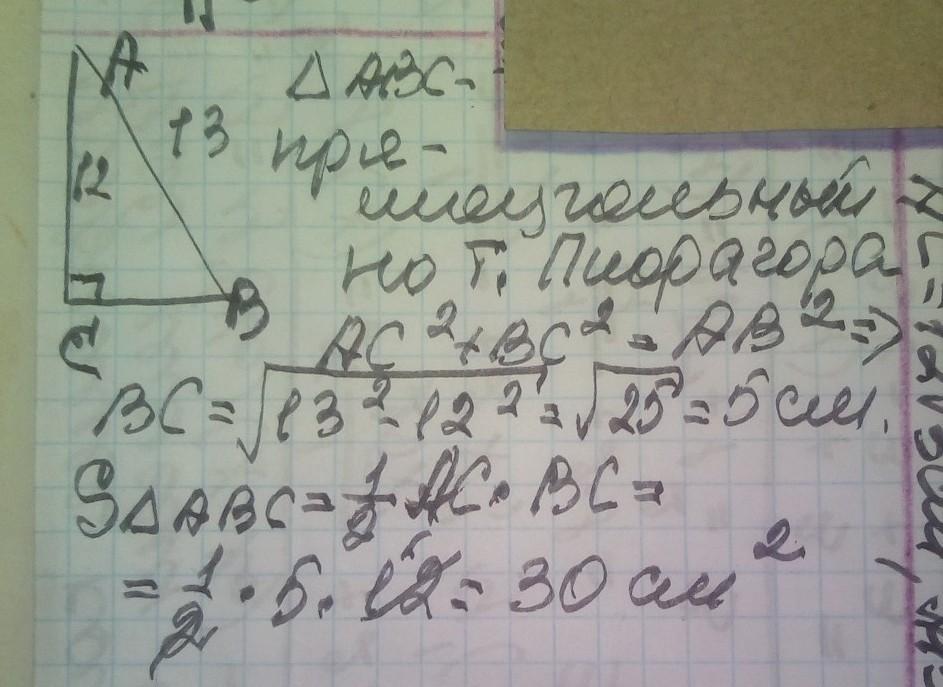 A
13
12
C
B
△ABC-
пря-
моугольный
по т. Пиофагора
AC² + BC² = AB² =>
BC = √13² - 12² = √25 = 5 см.
S△ABC = 1/2 AC · BC =
= 1/2 · 5 · 12 = 30 см²